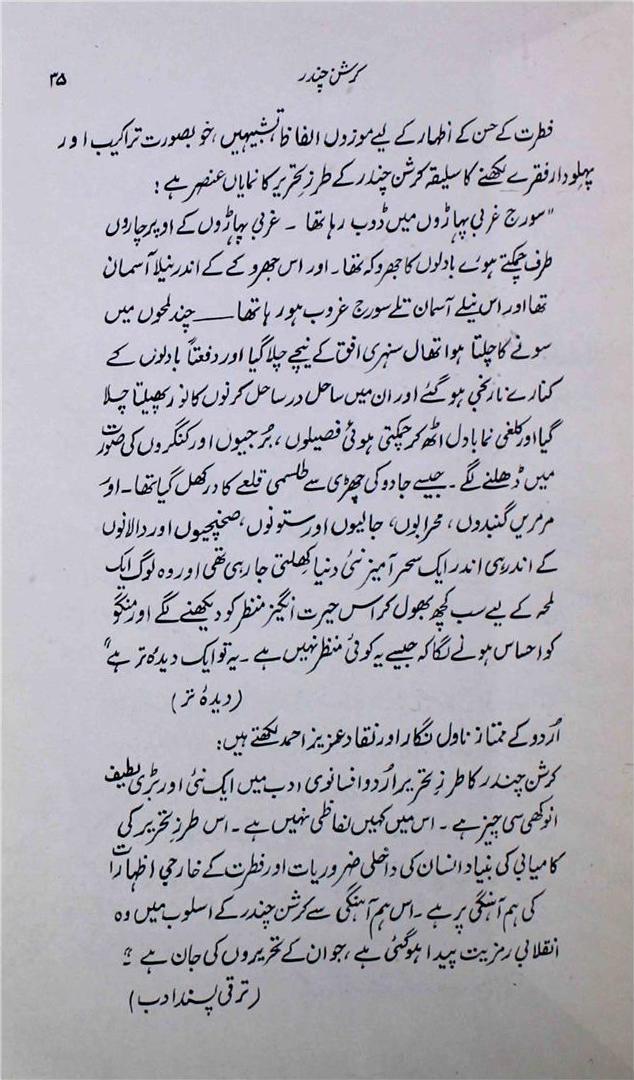 کرشن چندر ۳۵
فطرت کے حسن کے اظہار کے لیے موزوں الفاظ تشبیہیں، خوبصورت تراکیب اور
پہلودار فقرے لکھنے کا سلیقہ کرشن چندر کے طرزِ تحریر کا نمایاں عنصر ہے:
"سورج غربی پہاڑوں میں ڈوب رہا تھا ۔ غربی پہاڑوں کے اوپر چاروں
طرف چمکتے ہوئے بادلوں کا جھروکہ تھا۔ اور اس جھروکے کے اندر نیلا آسمان
تھا اور اس نیلے آسمان تلے سورج غروب ہو رہا تھا ـــــ چند لمحوں میں
سونے کا جلتا ہوا تھال سنہری افق کے نیچے چلا گیا اور دفعتاً بادلوں کے
کنارے نارنجی ہو گئے اور ان میں ساحل در ساحل کرنوں کا نور پھیلتا چلا
گیا اور کلغی نما بادل اٹھ کر چمکتی ہوئی فصیلوں، برجیوں اور کنگروں کی صورت
میں ڈھلنے لگے ۔ جیسے جادو کی چھڑی سے طلسمی قلعے کا در کھل گیا تھا۔ اور
مرمریں گنبدوں، محرابوں، جالیوں اور ستونوں، صحنچیوں اور دالانوں
کے اندر ہی اندر ایک سحر آمیز نئی دنیا کھلتی جا رہی تھی اور وہ لوگ ایک
لمحہ کے لیے سب کچھ بھول کر اس حیرت انگیز منظر کو دیکھنے لگے اور منگو
کو احساس ہونے لگا کہ جیسے یہ کوئی منظر نہیں ہے ۔ یہ تو ایک دیدۂ تر ہے"
(دیدۂ تر)
اُردو کے ممتاز ناول نگار اور نقاد عزیز احمد لکھتے ہیں:
کرشن چندر کا طرزِ تحریر اُردو افسانوی ادب میں ایک نئی اور بڑی لطیف
انوکھی سی چیز ہے ۔ اس میں کہیں لفاظی نہیں ہے ۔ اس طرزِ تحریر کی
کامیابی کی بنیاد انسان کی داخلی ضروریات اور فطرت کے خارجی اظہارات
کی ہم آہنگی پر ہے ۔ اس ہم آہنگی سے کرشن چندر کے اسلوب میں وہ
انقلابی رمزیت پیدا ہو گئی ہے، جو ان کے تحریروں کی جان ہے ۔"
(ترقی پسند ادب)